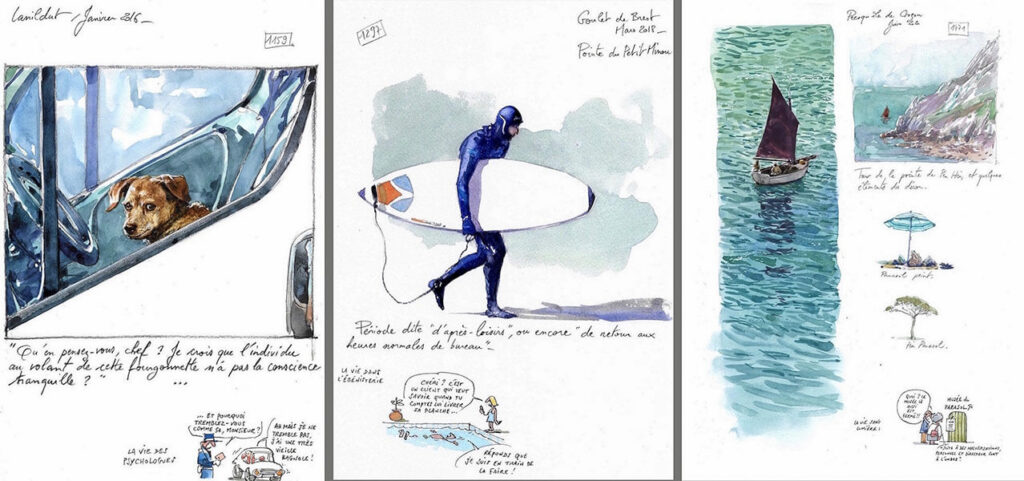 Lanildut / Janvier 2016_
1159
"Qu'en pensez-vous, chef ? Je crois que l'individu
au volant de cette fourgonnette n'a pas la conscience
tranquille ? " ...
LA VIE DES
PSYCHOLOGUES
... ET POURQUOI
TREMBLEZ-VOUS
COMME ÇA, MONSIEUR ?
AH MAIS JE NE
TREMBLE PAS,
J'AI UNE TRÈS
VIEILLE
BAGNOLE !
1297
Goulet de Brest
Mars 2018_
Pointe du Petit Minou
Période dite "d'après-loisirs", ou encore "de retour aux
heures normales de bureau"_
LA VIE DANS
L'ÉBÉNISTERIE
CHÉRI ? C'EST
UN CLIENT QUI VEUT
SAVOIR QUAND TU
COMPTES LUI LIVRER
SA PLANCHE...
RÉPONDS QUE
JE SUIS EN TRAIN DE
LA FAIRE !
Presqu'île de Crozon
Juin
1471
Tour de la pointe de Pen Hir, et quelques
éléments du décor.
Parasol peint.
Pin Parasol.
LA VIE SANS
LUMIÈRE :
QUOI ? LE
MUSÉE LE
EST
FERMÉ !!
MUSÉE DU
PARASOL
PERSONNEL ET DIRECTEUR SONT
À L'OMBRE !